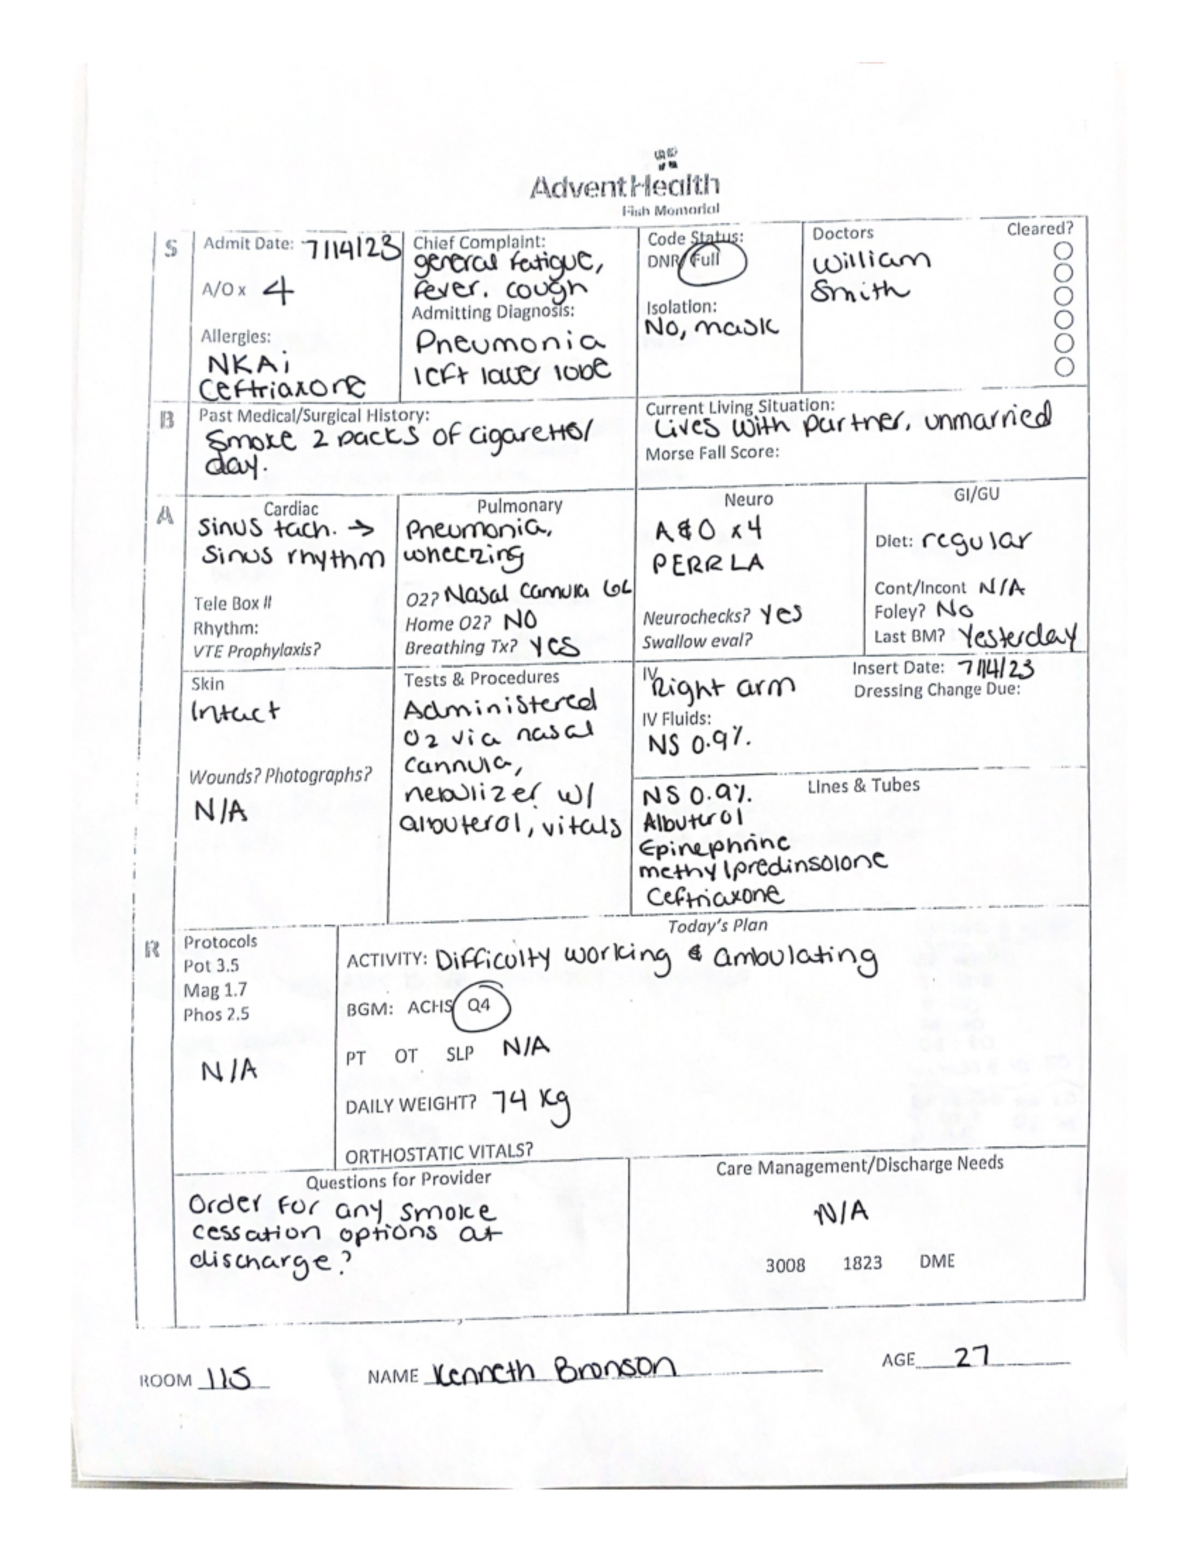 AdventHealth
Fish Memorial
S
Admit Date: 7/14/23
A/O x 4
Allergies:
NKA;
Ceftriaxone
Chief Complaint:
general fatigue,
fever, cough
Admitting Diagnosis:
Pneumonia
left lower lobe
Code Status:
DNR/Full
Isolation:
No, mask
Doctors
Cleared?
William
Smith
B
Past Medical/Surgical History:
Smoke 2 packs of cigarettes/
day.
Current Living Situation:
Lives with partner, unmarried
Morse Fall Score:
A
Cardiac
Sinus tach. →
Sinus rhythm
Tele Box #
Rhythm:
VTE Prophylaxis?
Pulmonary
Pneumonia,
wheezing
O2? Nasal Cannula 6L
Home O2? NO
Breathing Tx? Yes
Neuro
A & O x 4
PERRLA
Neurochecks? Yes
Swallow eval?
GI/GU
Diet: regular
Cont/Incont N/A
Foley? No
Last BM? Yesterday
Skin
Intact
Wounds? Photographs?
N/A
Tests & Procedures
Administered
O2 via nasal
cannula,
nebulizer w/
albuterol, vitals
IV
Right arm
Insert Date: 7/14/23
Dressing Change Due:
IV Fluids:
NS 0.9%.
Lines & Tubes
NS 0.9%.
Albuterol
Epinephrine
methylpredinsolone
Ceftriaxone
R
Protocols
Pot 3.5
Mag 1.7
Phos 2.5
N/A
Today's Plan
ACTIVITY: Difficulty working & ambulating
BGM: ACHS Q4
PT OT SLP N/A
DAILY WEIGHT? 74 Kg
ORTHOSTATIC VITALS?
Questions for Provider
Order for any smoke
cessation options at
discharge?
Care Management/Discharge Needs
N/A
3008 1823 DME
ROOM 115 NAME Kenneth Bronson AGE 27